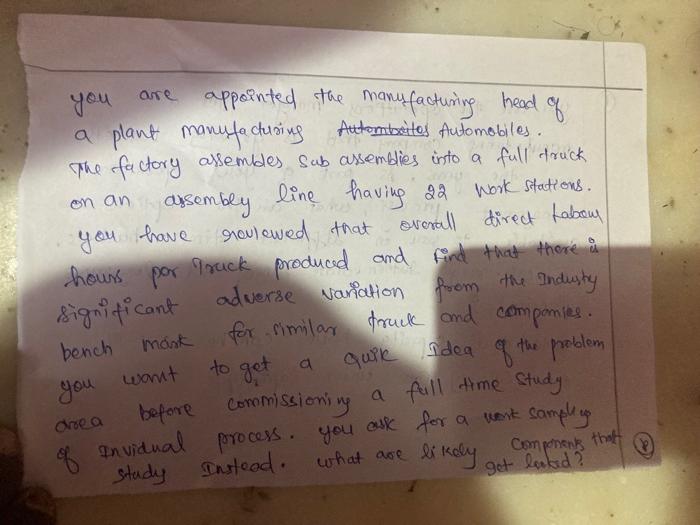 you are appointed the manufacturing head of
a plant manufacturing Automobiles Automobiles.
The factory assembles Sub assemblies into a full truck
on an assembly line having 22 work stations.
you have reviewed that overall direct Labour
hours per Truck produced and find that there is
significant adverse variation from the Industry
bench mark for similar truck and companies.
you want to get a quik Idea of the problem
area before commissioning a full time study
of Invidual process. you ask for a work sampling
study Instead. what are likely components that
get looked?